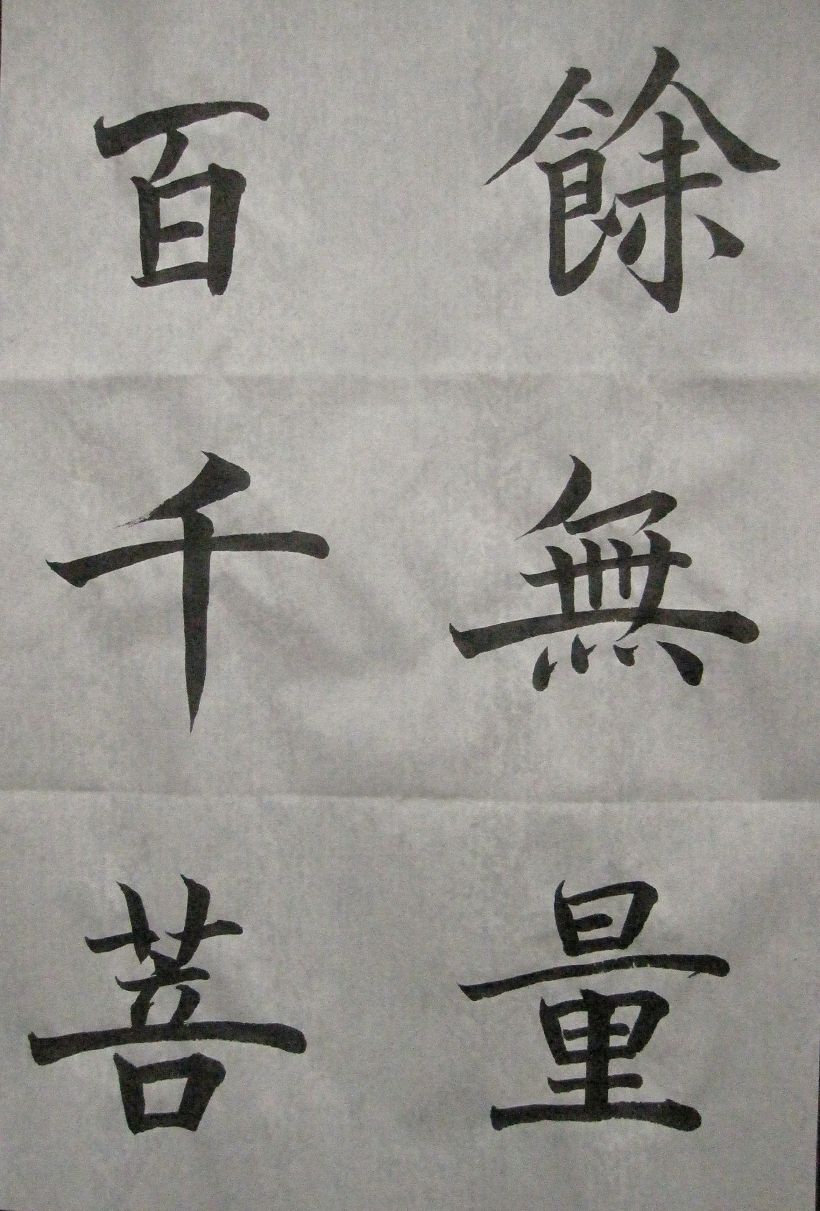 餘無量
百千菩